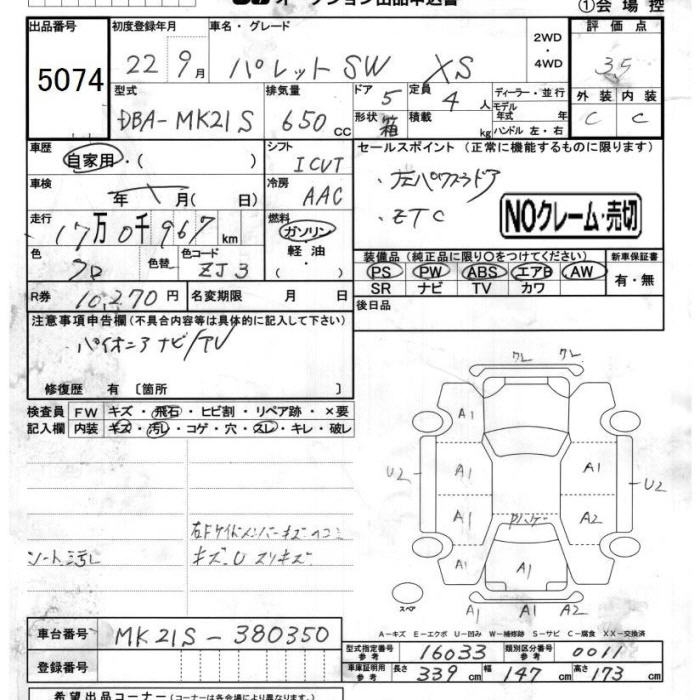 ①会場控
出品番号 初度登録年月 車名・グレード 2WD ・ 4WD 評価点
5074 22 9月 パレットSW XS 3.5
型式 排気量 ドア 5 定員 4人 ディーラー・並行 外装 内装
DBA-MK21S 650cc 形状 箱 積載 kg モデル年式 年 ハンドル 左・右 C C
車歴 自家用・( ) シフト ICVT セールスポイント (正常に機能するものに限ります)
車検 年 月(日) 冷房 AAC ・左パワスラドア
・ETC NOクレーム・売切
走行 17万0千967km 燃料 ガソリン・軽油・( )
色 クロ 色替 色コード ZJ3 装備品(純正品に限り○をつけてください) 新車保証書
PS PW ABS エアB AW 有・無
SR ナビ TV カワ
R券 10,270円 名変期限 月 日 後日品
注意事項申告欄(不具合内容等は具体的に記入して下さい)
パイオニアナビ/TV
修復歴 有 〔箇所 〕
検査員 FW キズ・飛石・ヒビ割・リペア跡・×要
記入欄 内装 キズ・汚し・コゲ・穴・スレ・キレ・破レ
シート汚し
クレ クレ
A1
U2 A1 A1 U2
A1 A2
A1 A1
スペア A1 A1 A2
A-キズ E-エクボ U-凹み W-補修跡 S-サビ C-腐食 XX-交換済
車台番号 MK21S-380350
登録番号
型式指定番号 参考 16033 類別区分番号 参考 0011
車庫証明用 参考 長さ 339cm 幅 147cm 高さ 173cm
希望出品コーナー(コーナーは各会場により異なります。)